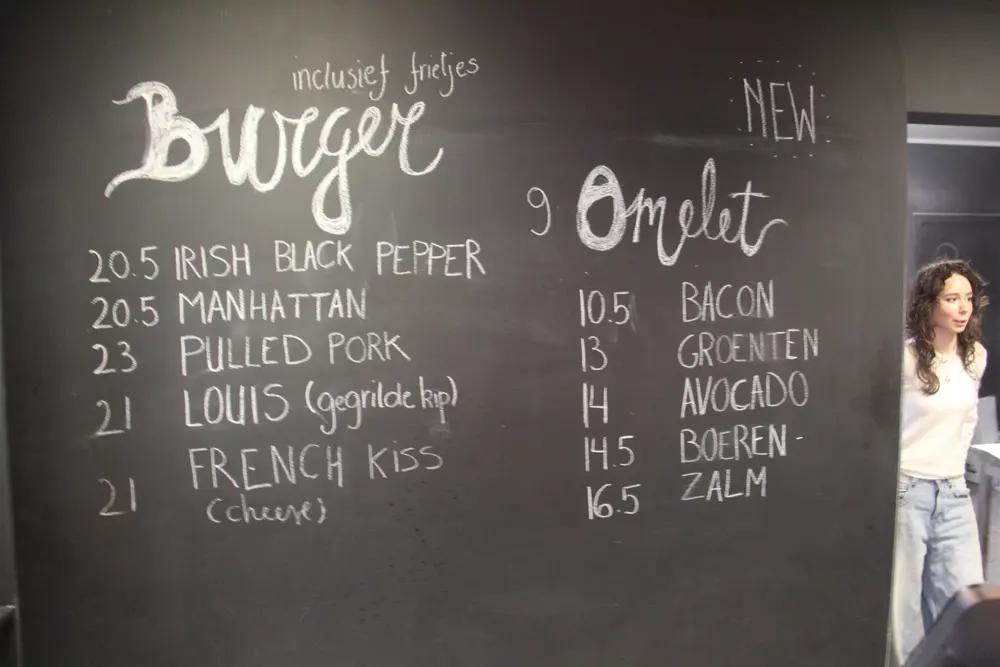 inclusief frietjes
Burger
20.5 IRISH BLACK PEPPER
20.5 MANHATTAN
23 PULLED PORK
21 LOUIS (gegrilde kip)
21 FRENCH KISS
(cheese)
NEW
9 Omelet
10.5 BACON
13 GROENTEN
14 AVOCADO
14.5 BOEREN-
16.5 ZALM